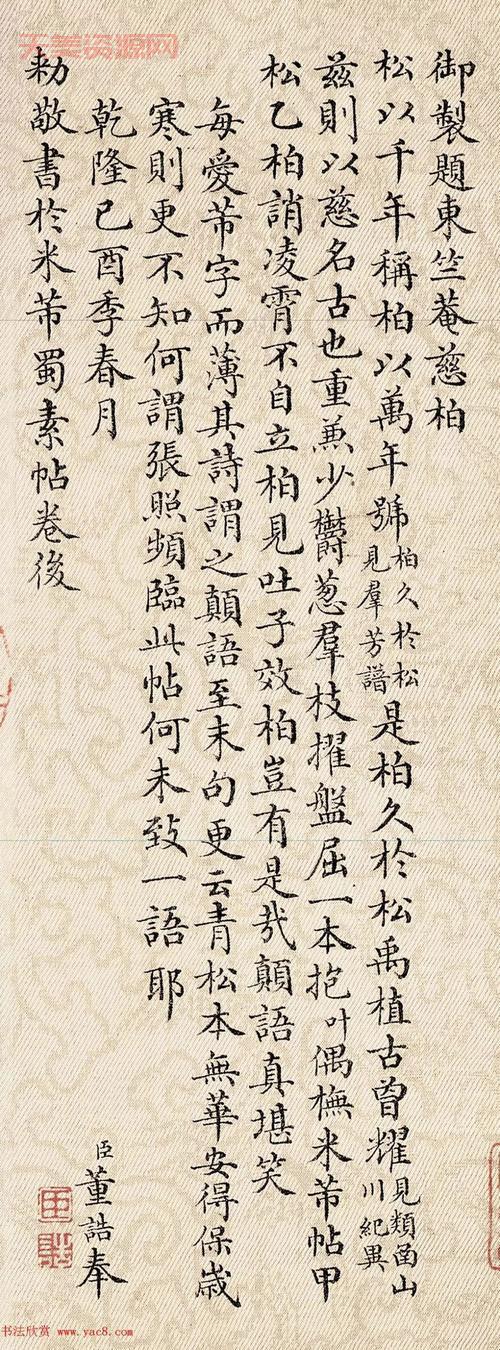 御製題東竺菴慈柏
松以千年稱柏以萬年號柏久於松見羣芳譜是柏久於松禹植古曾耀見類函山川紀異
茲則以慈名古也重兼少欝蔥羣枝擢盤屈一本抱叶偶橅米芾帖甲
松乙柏誚凌霄不自立柏見吐子效柏豈有是㢤顛語真堪笑
每愛芾字而薄其詩謂之顛語至末句更云青松本無華安得保嵗
寒則更不知何謂張照頻臨此帖何未致一語耶
乾隆己酉季春月
臣董誥奉
勅敬書於米芾蜀素帖卷後
天美资源网
书法欣赏 www.yac8.com